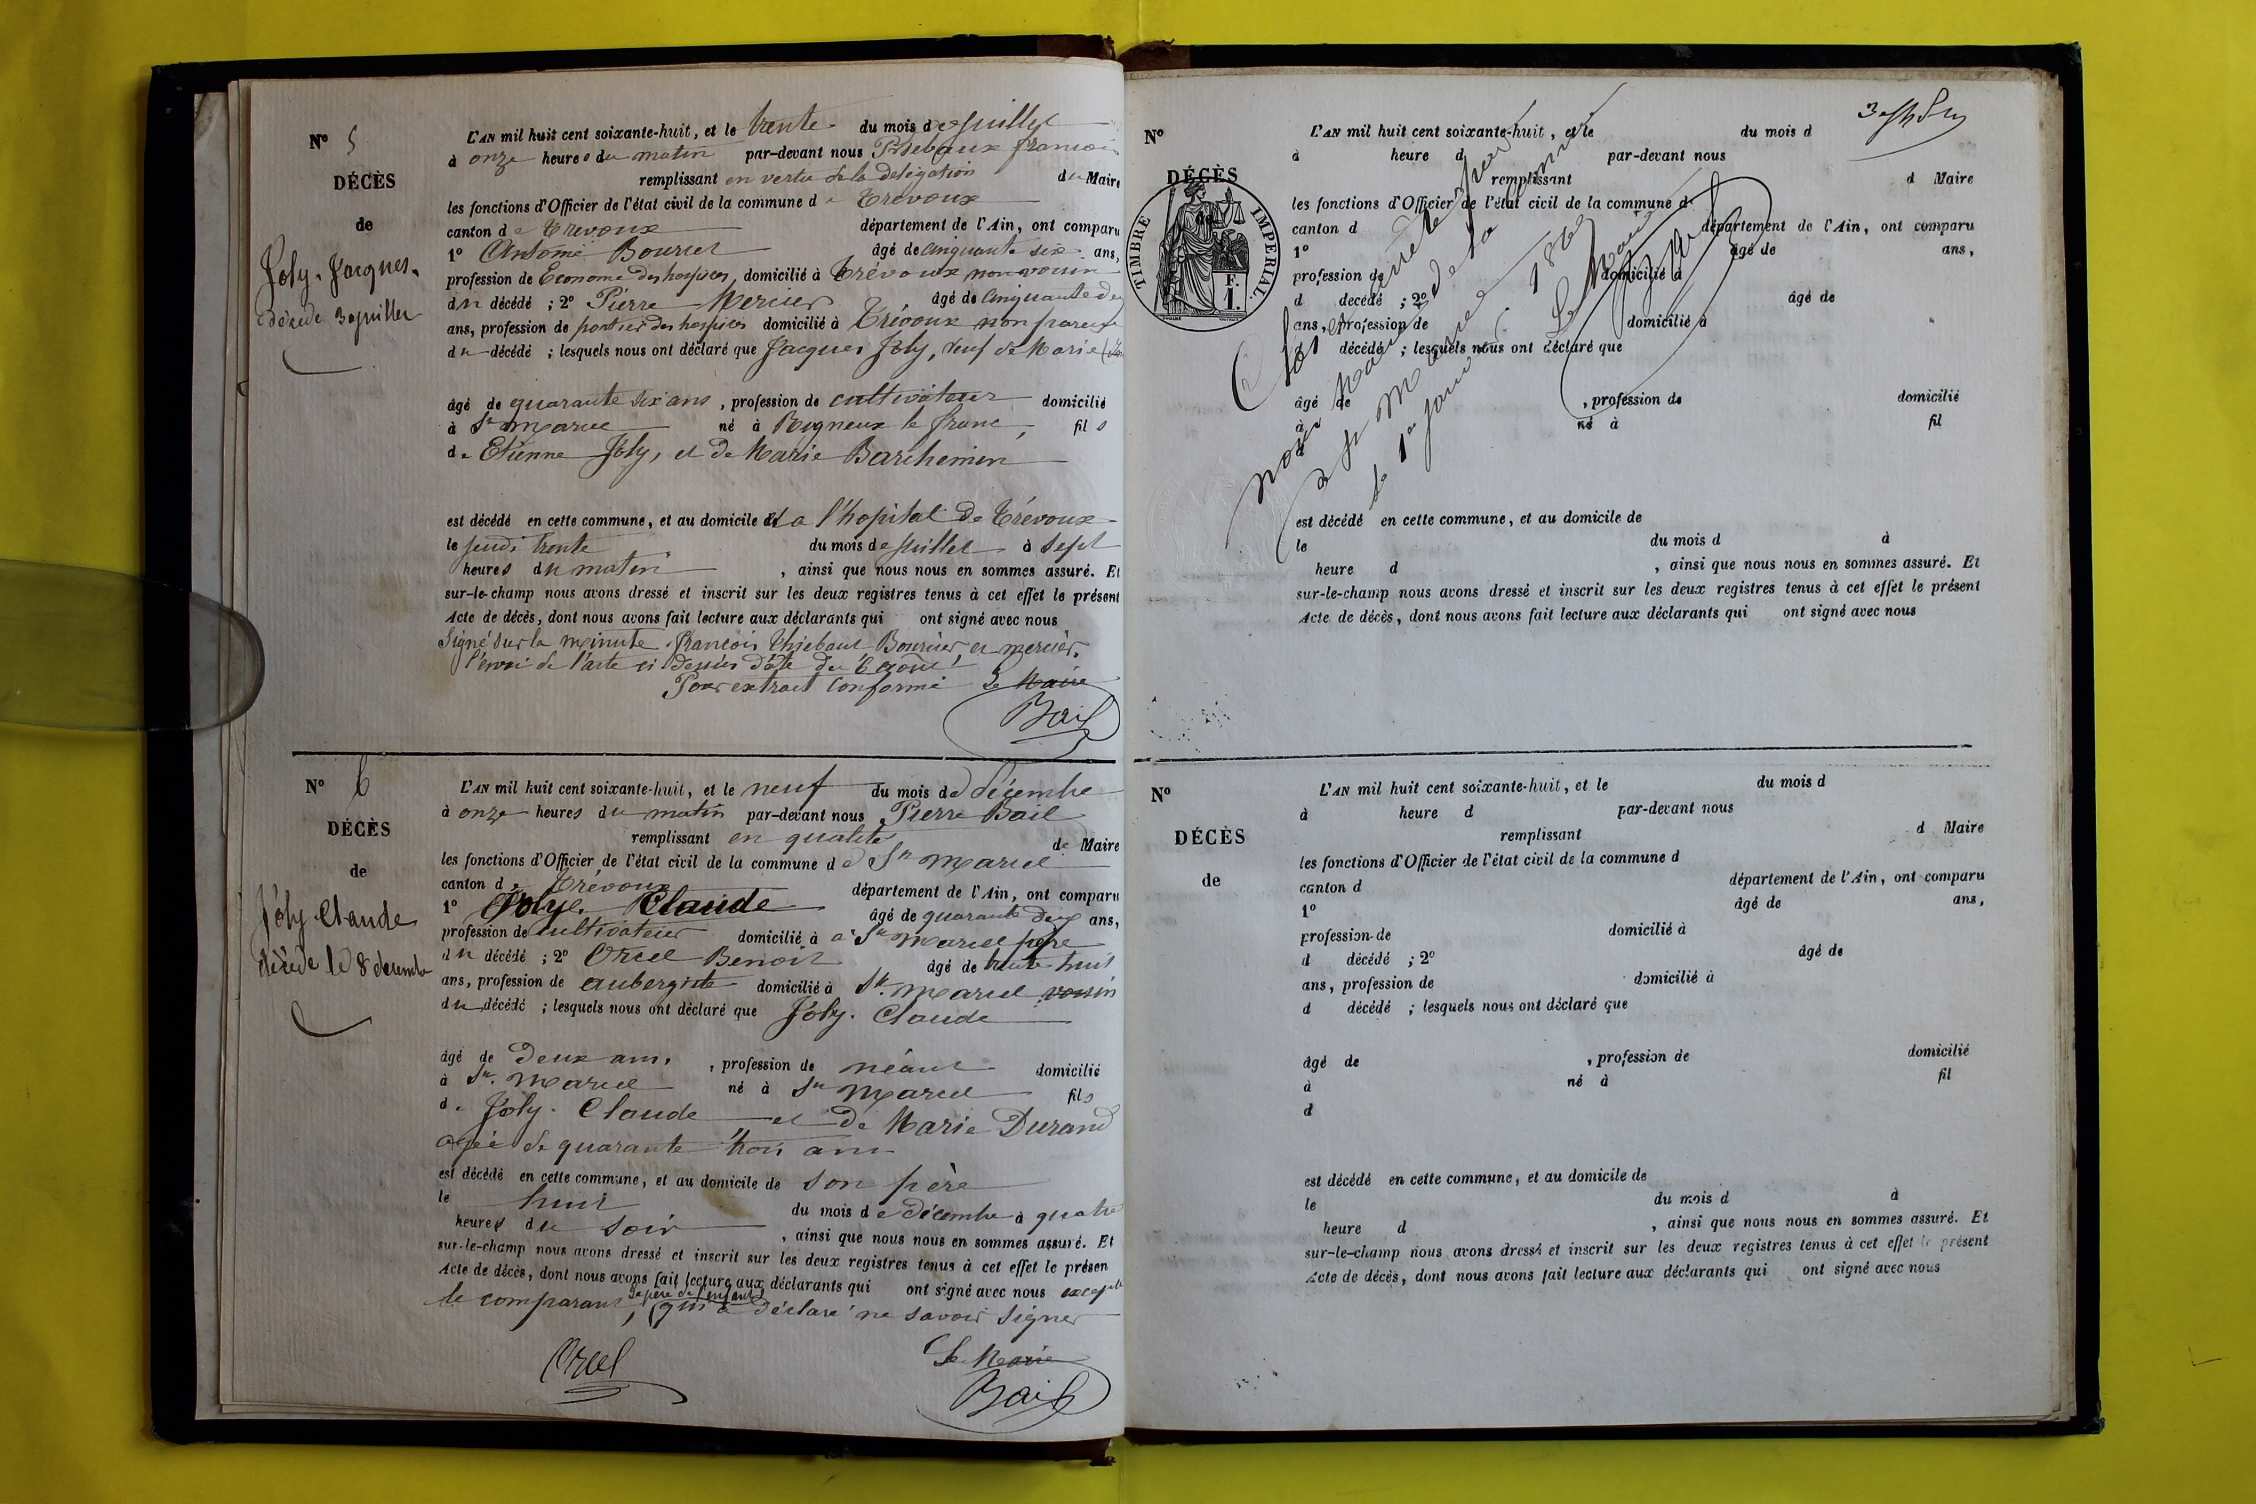 Nº 5
DÉCÈS
de
Joly. Jacques.
décédé 30 juillet
L'AN mil huit cent soixante-huit, et le trente du mois de juillet
à onze heures du matin par-devant nous francois
remplissant en vertu de la délégation du Maire
les fonctions d'Officier de l'état civil de la commune de Trévoux
canton de Trévoux département de l'Ain, ont comparu
1º Antoine Bourcet âgé de cinquante six ans,
profession de Econome des hospices, domicilié à Trévoux non voisin
du décédé ; 2º Pierre Mercier âgé de cinquante
ans, profession de portier des hospices domicilié à Trévoux non parent
du décédé ; lesquels nous ont déclaré que Jacques Joly, veuf de Marie
âgé de quarante six ans, profession de cultivateur domicilié
à St Marcel né à Rigneux le franc, fils
de Etienne Joly, et de Marie Barchemin
est décédé en cette commune, et au domicile à l'hopital de Trévoux
le jeudi trente du mois de juillet à sept
heures du matin, ainsi que nous nous en sommes assuré. Et
sur-le-champ nous avons dressé et inscrit sur les deux registres tenus à cet effet le présent
Acte de décès, dont nous avons fait lecture aux déclarants qui ont signé avec nous
Signé sur la minute francois Thiebaut Bourcier et mercier.
l'envoi de l'acte ci dessus date du 6 août
Pour extrait conforme Le Maire
Bail
Nº 6
DÉCÈS
de
Joly Claude
décédé le 8 decembre
L'AN mil huit cent soixante-huit, et le neuf du mois de Décembre
à onze heures du matin par-devant nous Pierre Bail
remplissant en qualité de Maire
les fonctions d'Officier de l'état civil de la commune de St Marcel
canton de Trévoux département de l'Ain, ont comparu
1º Joly. Claude âgé de quarante deux ans,
profession de cultivateur domicilié à a St Marcel père
du décédé ; 2º Orcel Benoit âgé de trente huit
ans, profession de aubergiste domicilié à St. Marcel voisin
du décédé ; lesquels nous ont déclaré que Joly. Claude
âgé de deux ans, profession de néant domicilié
à St. Marcel né à St Marcel fils
de Joly. Claude et de Marie Durand
agée de quarante trois ans
est décédé en cette commune, et au domicile de son père
le huit du mois de décembre à quatre
heures du soir, ainsi que nous nous en sommes assuré. Et
sur-le-champ nous avons dressé et inscrit sur les deux registres tenus à cet effet le présen
Acte de décès, dont nous avons fait lecture aux déclarants qui ont signé avec nous excepté
le comparant, le père de l'enfant, qui a déclaré ne savoir signer
Orcel
Le Maire
Bail
Nº
DÉCÈS
de
TIMBRE IMPÉRIAL.
F.
1.
L'AN mil huit cent soixante-huit, et le du mois d
à heure d par-devant nous
remplissant d Maire
les fonctions d'Officier de l'état civil de la commune d
canton d département de l'Ain, ont comparu
1º âgé de ans,
profession de domicilié à
d décédé ; 2º âgé de
ans, profession de domicilié à
d décédé ; lesquels nous ont déclaré que
âgé de , profession de domicilié
à né à fil
d
est décédé en cette commune, et au domicile de
le du mois d à
heure d , ainsi que nous nous en sommes assuré. Et
sur-le-champ nous avons dressé et inscrit sur les deux registres tenus à cet effet le présent
Acte de décès, dont nous avons fait lecture aux déclarants qui ont signé avec nous
Clos et arreté par
nous Maire de la commune
à St Marcel
le 1er janvier 1869
Le Maire
Bail
Nº
DÉCÈS
de
L'AN mil huit cent soixante-huit, et le du mois d
à heure d par-devant nous
remplissant d Maire
les fonctions d'Officier de l'état civil de la commune d
canton d département de l'Ain, ont comparu
1º âgé de ans,
profession de domicilié à
d décédé ; 2º âgé de
ans, profession de domicilié à
d décédé ; lesquels nous ont déclaré que
âgé de , profession de domicilié
à né à fil
d
est décédé en cette commune, et au domicile de
le du mois d à
heure d , ainsi que nous nous en sommes assuré. Et
sur-le-champ nous avons dressé et inscrit sur les deux registres tenus à cet effet le présent
Acte de décès, dont nous avons fait lecture aux déclarants qui ont signé avec nous